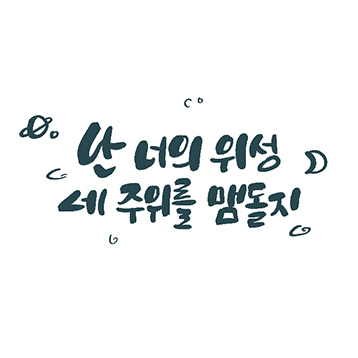 난 너의 위성
네 주위를 맴돌지